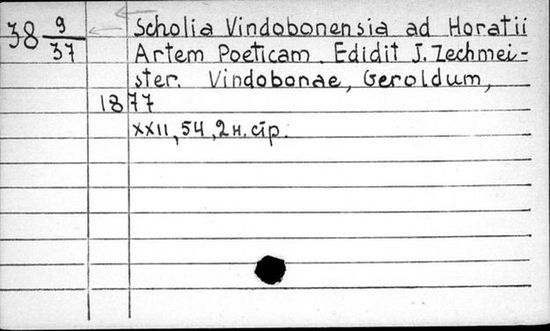 38 9/37 Scholia Vindobonensia ad Horatii
Artem Poeticam. Edidit J. Zechmei-
ster. Vindobonae, Geroldum,
1877
XXII, 54, 2 н. стр.